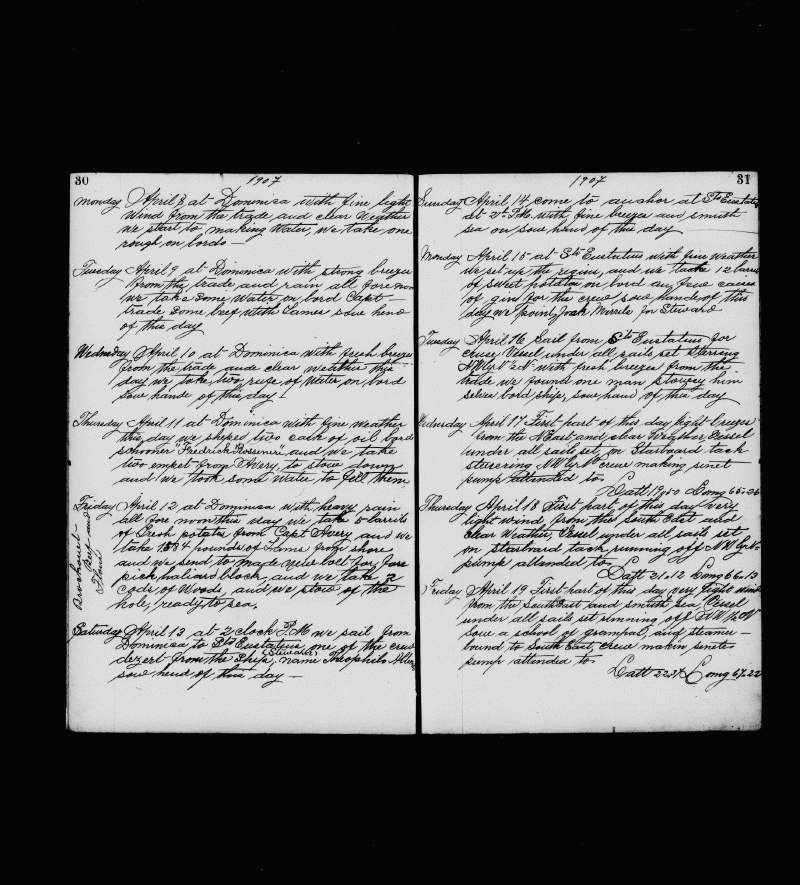 30
1907
Monday April 8 at Dominica with fine light
Wind from the trade, and clear Weather
we start to making Water, we take one
rough on bordo —
Tuesday April 9 at Dominica with strong breezes
from the trade and rain all fore noon
we take some Water on bord Capt
trade some beef with James sow hend
of this day
Wednesday April 10 at Dominica with fresh breezes
from the trade and clear weather this
day we take two rufe of Water on bord
sow hande of this day!
Thursday April 11 at Dominica with fine weather
this day we sheped two cask of oil bord
schooner "Fredrick Rossener" and we take
two empet from Avery, to stow down
and we took some Water to fell them
Friday April 12 at Dominica with heavy rain
all fore noon this day we take 5 barrils
of Fresh potates from Capt Avery and we
take 1584 pounds of from shore
and we send to made new bolt for fore
pick haliard block, and we take 2
Cods of Woods, and we stow of the
hole, ready to sea.
Beef and
Flour
Saturday April 13 at 2 clock P.M we sail from
Dominica to Sta Eustatius one of the crew
(Steward)
dezert from the Ship, name Theophilo
sow hend of this day —
31
1907
Sunday April 14 come to anchor at Sta Eustatius
at 2 P.M. with, fine breezes and smuth
sea on sow hand of this day
Monday April 15 at Sta Eustatius with fine Weather
we set up the regins, and we tacke 12 barrils
of sweet potatoe on bord an few caices
of gin for the crew sow hande of this
day we point, Jack for Steward
Tuesday April 16 Sail from Sta Eustatius for
cruse Vessel under all sails set sterring
N W by N 2 N with fresh breezes from the
trade we found one man stowey him
selves bord ship, sow hand of this day
Wednesday April 17 First part of this day light breezes
from the N East and clear Weather Vessel
under all sails set on Starboard tack
steering N W by N crew making sinet
pump attended to
Latt 19.50 Long 65.26
Thursday April 18 First part of this day very
light wind from the South East and
clear Weather, Vessel under all sails set
on starboard tack running off N W by N
pump attended to
Latt 21.12 Long 66.13
Friday April 19 First part of this day very light wind
from the SouthEast and smuth sea, Vessel
under all sails set running off N W 1/2 N
sow a school of grampas, and steamer —
bound to South East, crew makin sinets
pump attended to
Latt 22.37 Long 67.22